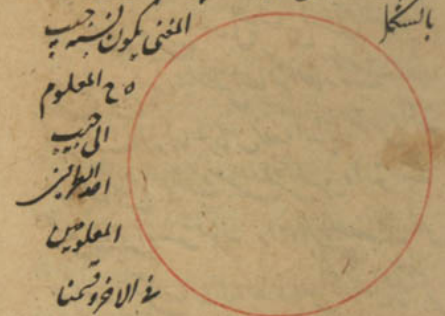 بالشكل
المغنى يكون نسبة جيب
ه ح المعلوم
الى جيب
احد الطرفين
المعلومين
فى الاخر وقسمنا